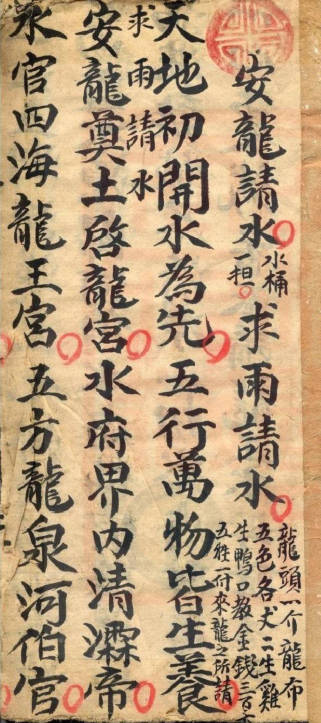 安龍請水 水桶一担 求雨請水 龍頭一个龍布
五色各丈二生雞
生鴨口教金錢三百
五牲付來龍之所請
天地初開水為先五行萬物皆生養
求雨請水
安龍奠土啓龍宮水府界内清潔帝
水官四海龍王宮五方龍泉河伯官